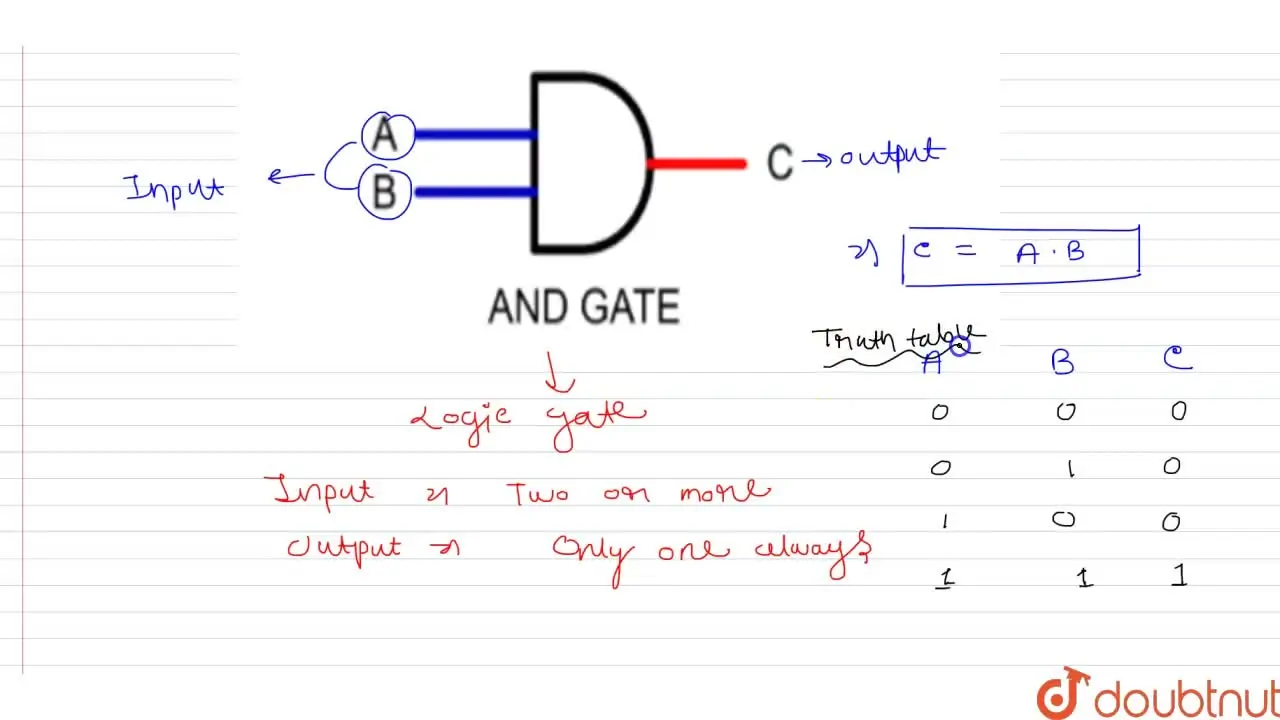 A
B
Input
C → output
⇒ C = A · B
AND GATE
Truth table
A B C
0 0 0
0 1 0
1 0 0
1 1 1
Logic gate
Input ⇒ Two or more
Output ⇒ Only one always
doubtnut